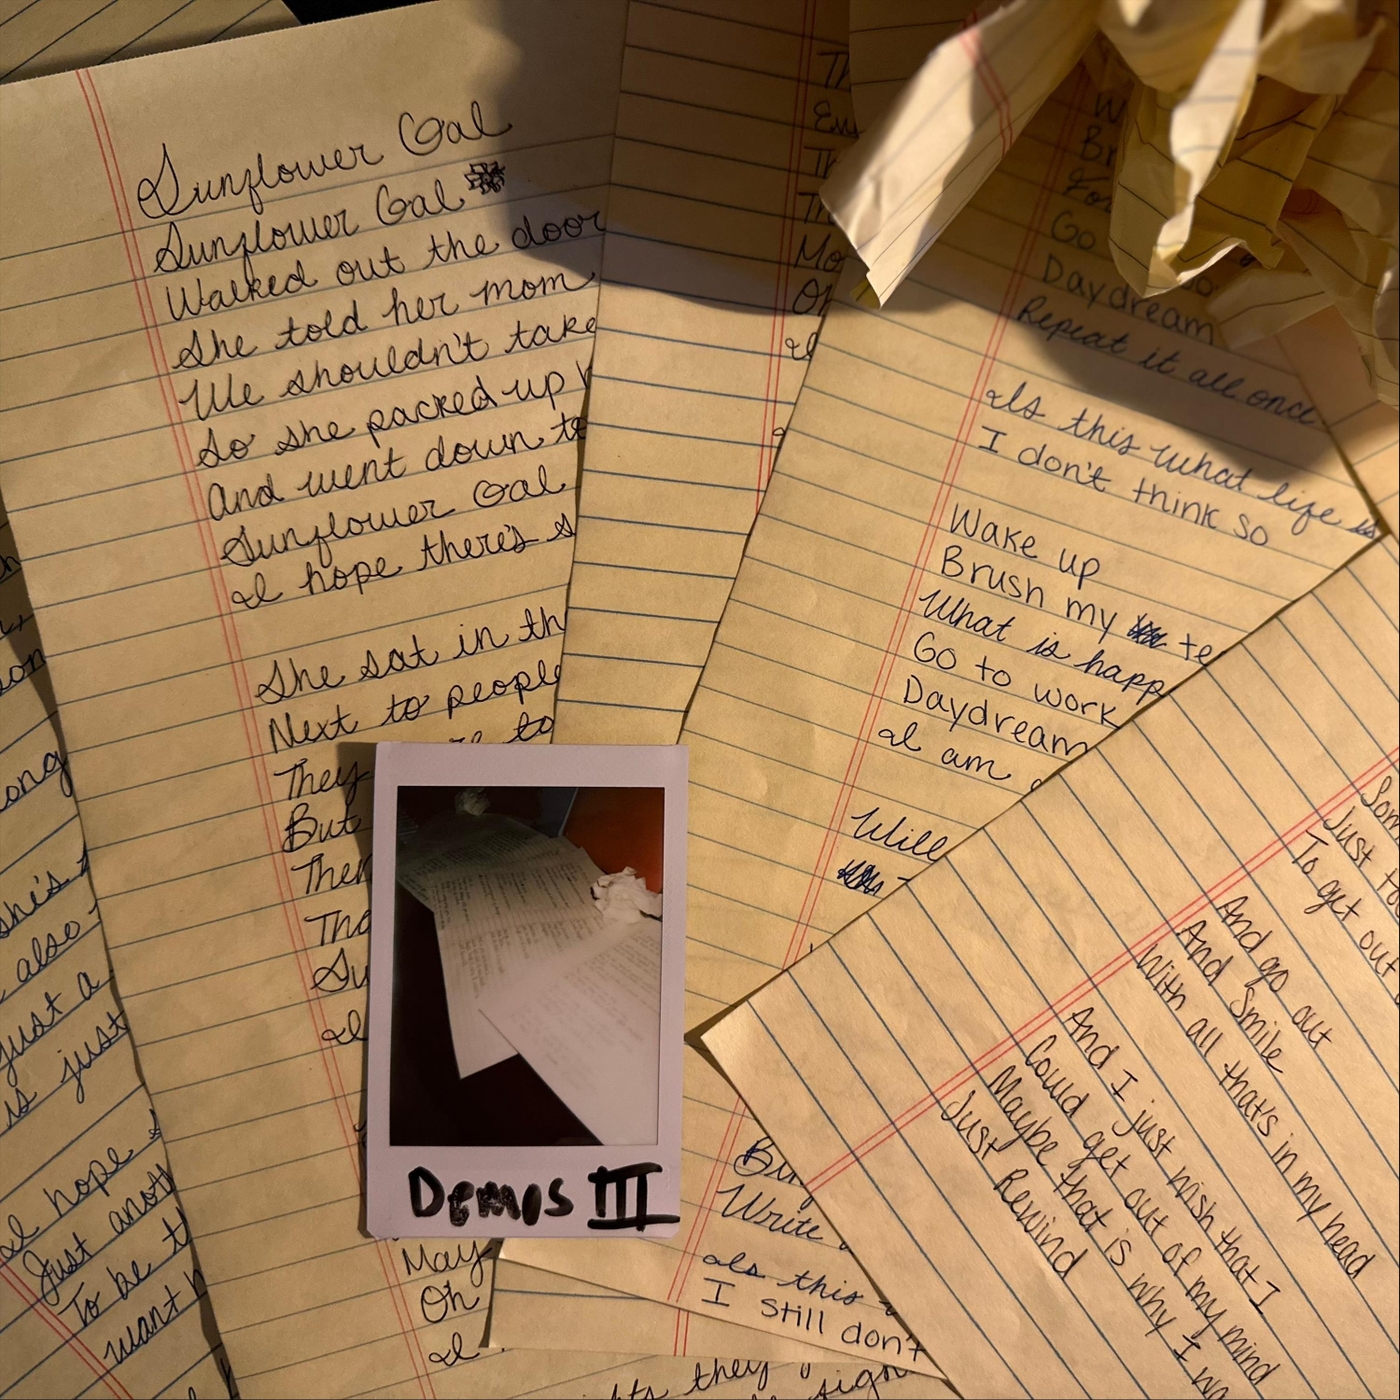 Sunflower Gal
Sunflower Gal
Walked out the door
She told her mom
We shouldn't take
So she packed up
And went down to
Sunflower Gal
I hope there's
She sat in
Next to people
to
They
But
May
Oh
I
Go
Daydream
Repeat it all once
Is this what life is
I don't think so
Wake up
Brush my
What is
Go to work
Daydream
I am
Will
Write
Is this
I still don't
they
Just
To get out
And go out
And Smile
With all that's in my head
And I just wish that I
Could get out of my mind
Maybe that is why I
Just Rewind
she's
also
just a
is just
I hope
Just
To be
want
Demos III